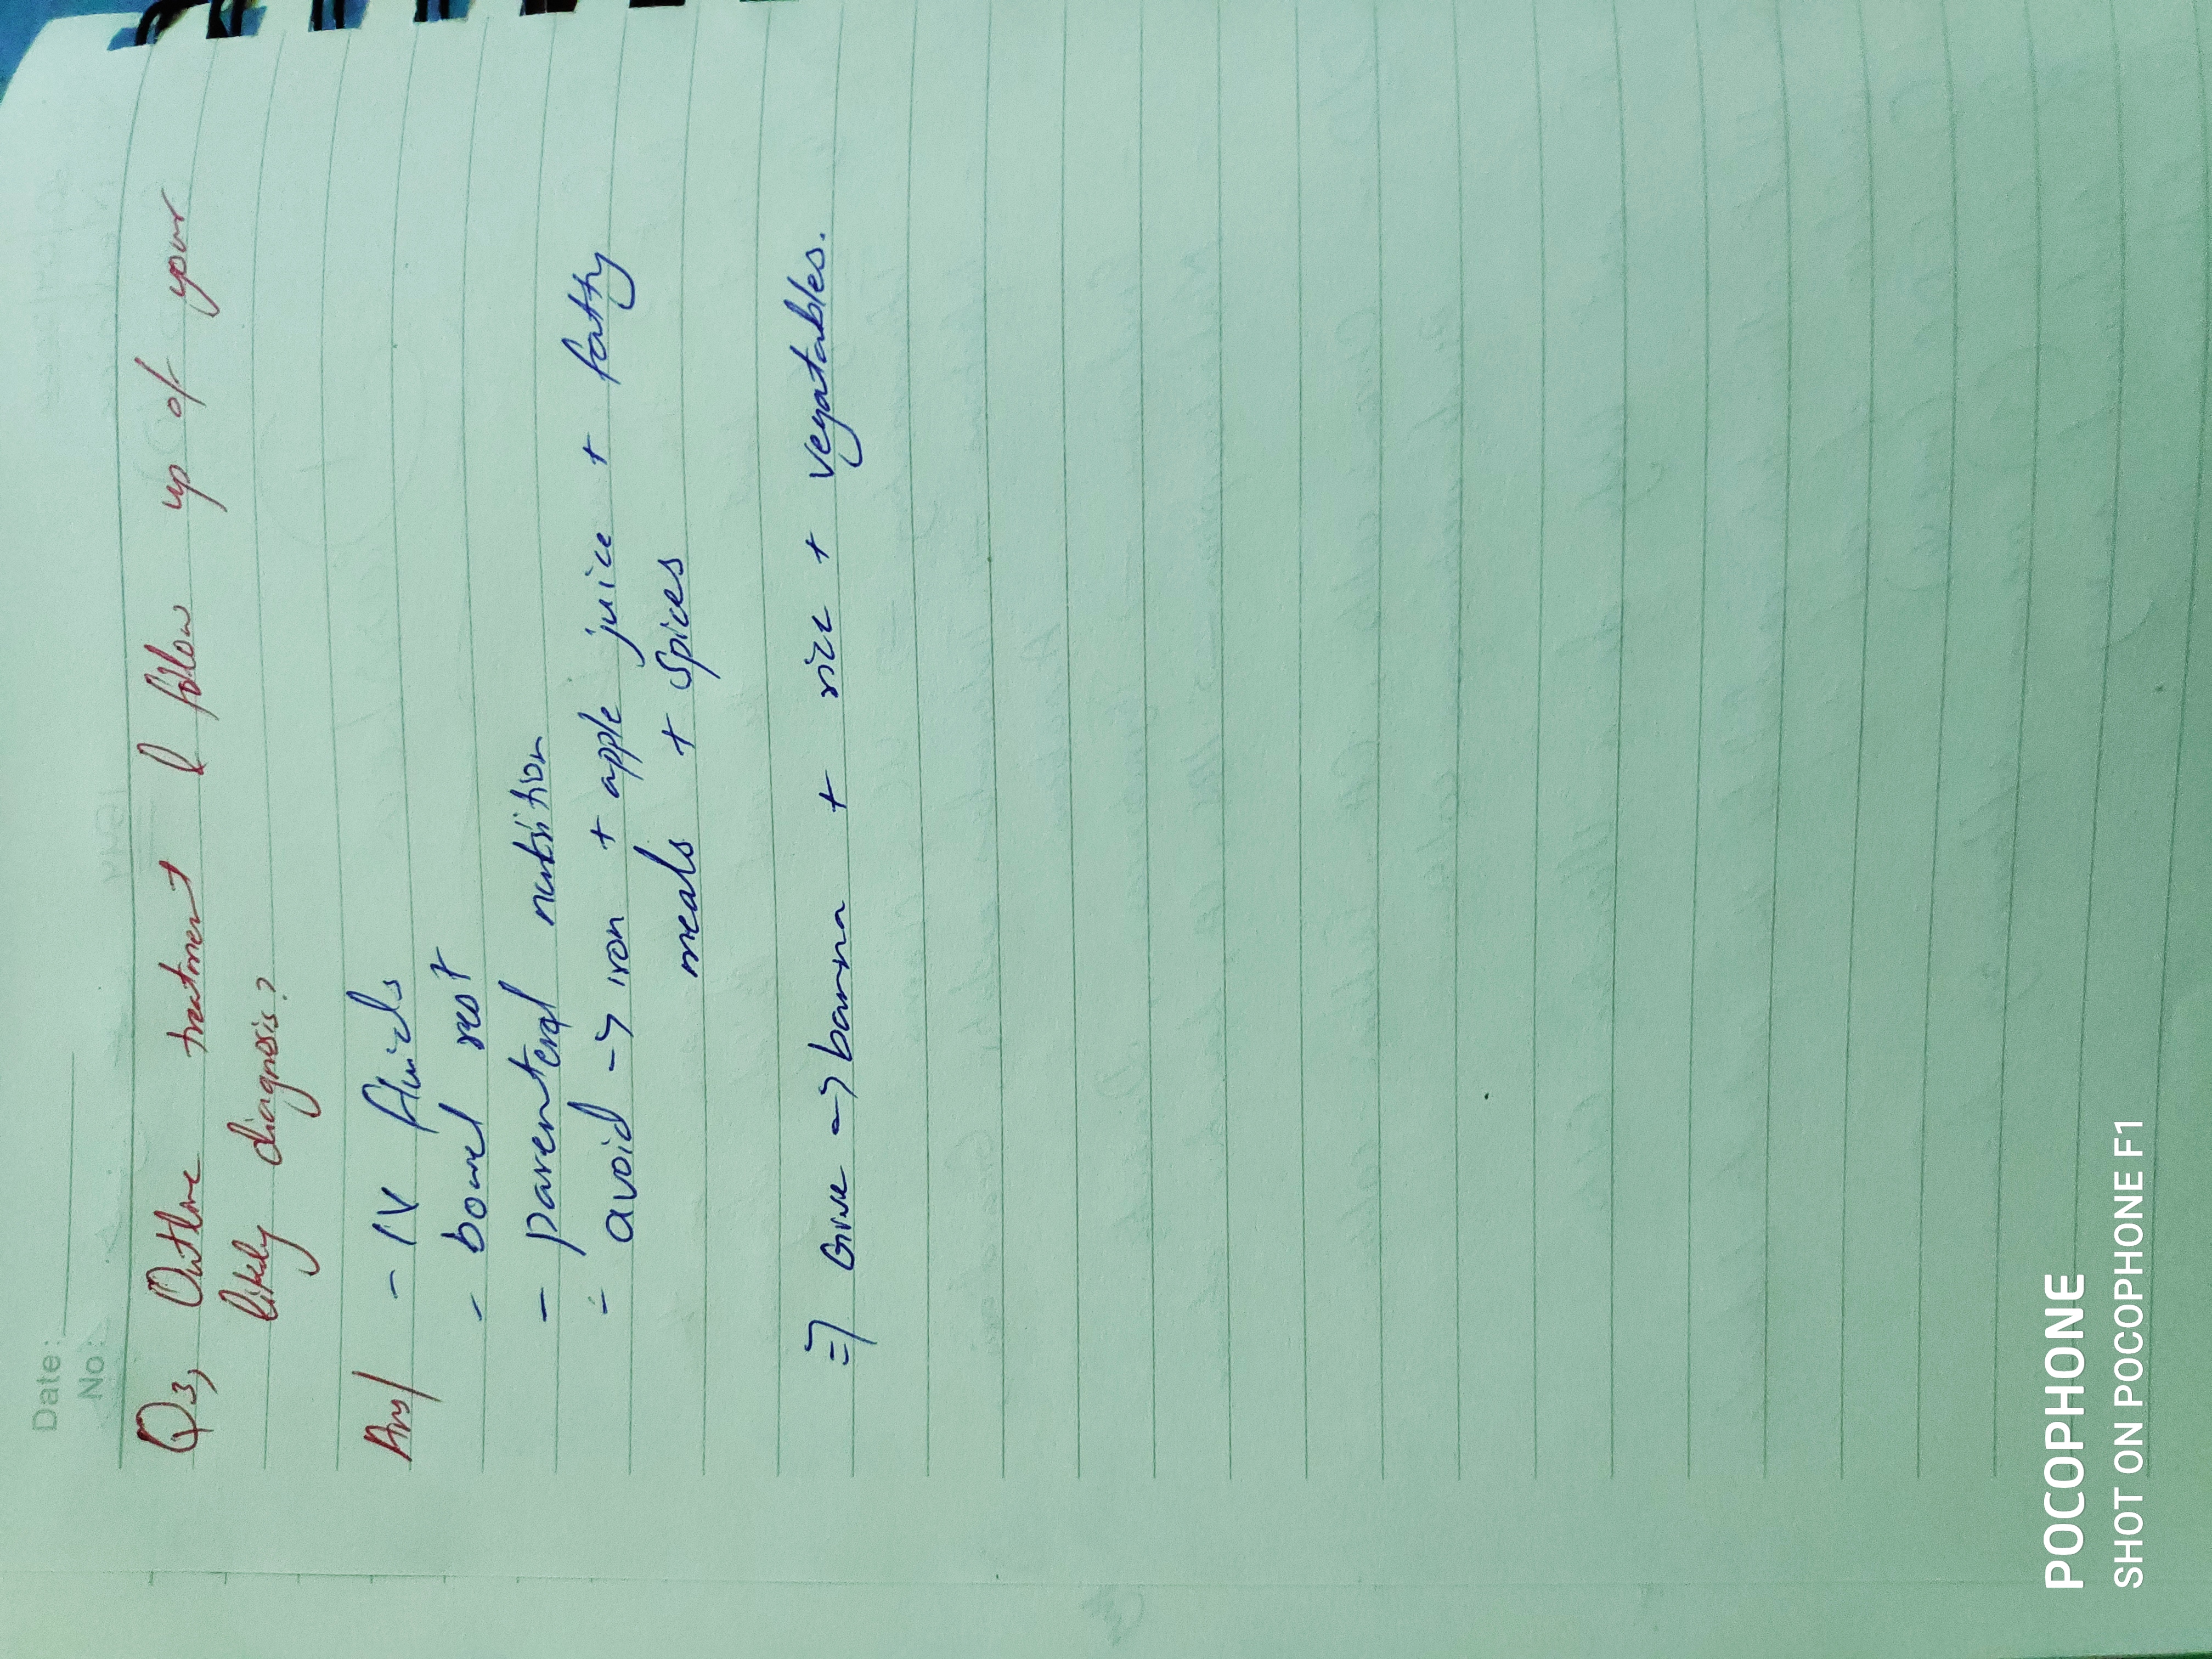 Date:
No:
Q3, Outline treatment & follow up of your
likely diagnosis?
Ans/ - IV fluids
- bowel rest
- parenteral nutrition
- avoid -> iron + apple juice + fatty
meals + spices
=> Give -> banna + rice + vegatables.
POCOPHONE
SHOT ON POCOPHONE F1